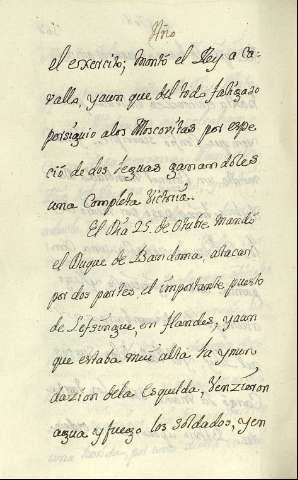 Año
el exercito; montó el Rey a Ca-
vallo, y aun que del todo fatigado
persiguio a los Moscovitas por espe-
cio de dos leguas ganandoles
una Completa Victoria.
El Dia 25. de Otubre mandó
el Duque de Bandoma, atacar
por dos partes el importante puesto
de Lefsingue, en flandes, y aun
que estaba mui alta la ynun
dazion de la Esquelda, Venzieron
agua y fuego los soldados, y en